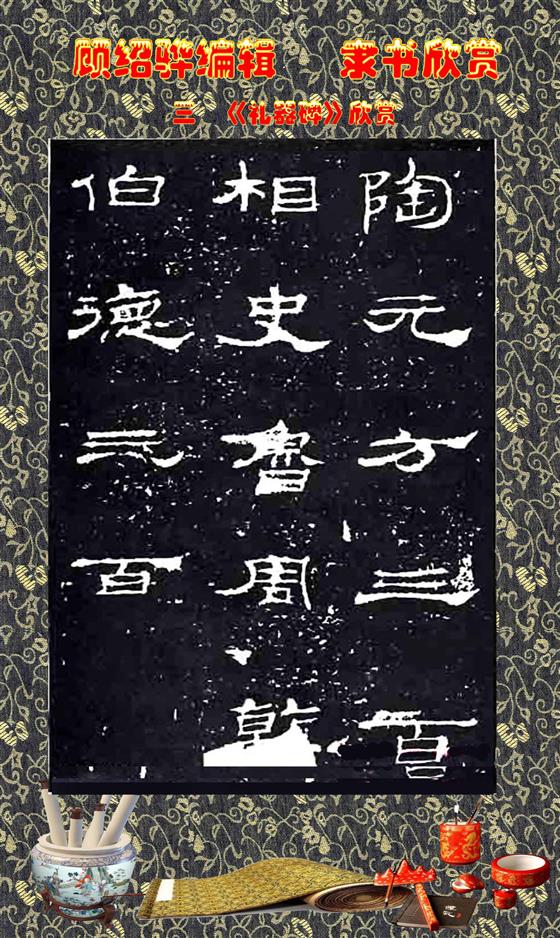 顾绍骅编辑 隶书欣赏
三 《礼器碑》欣赏
陶元方三百
相史魯周乾
伯德三百